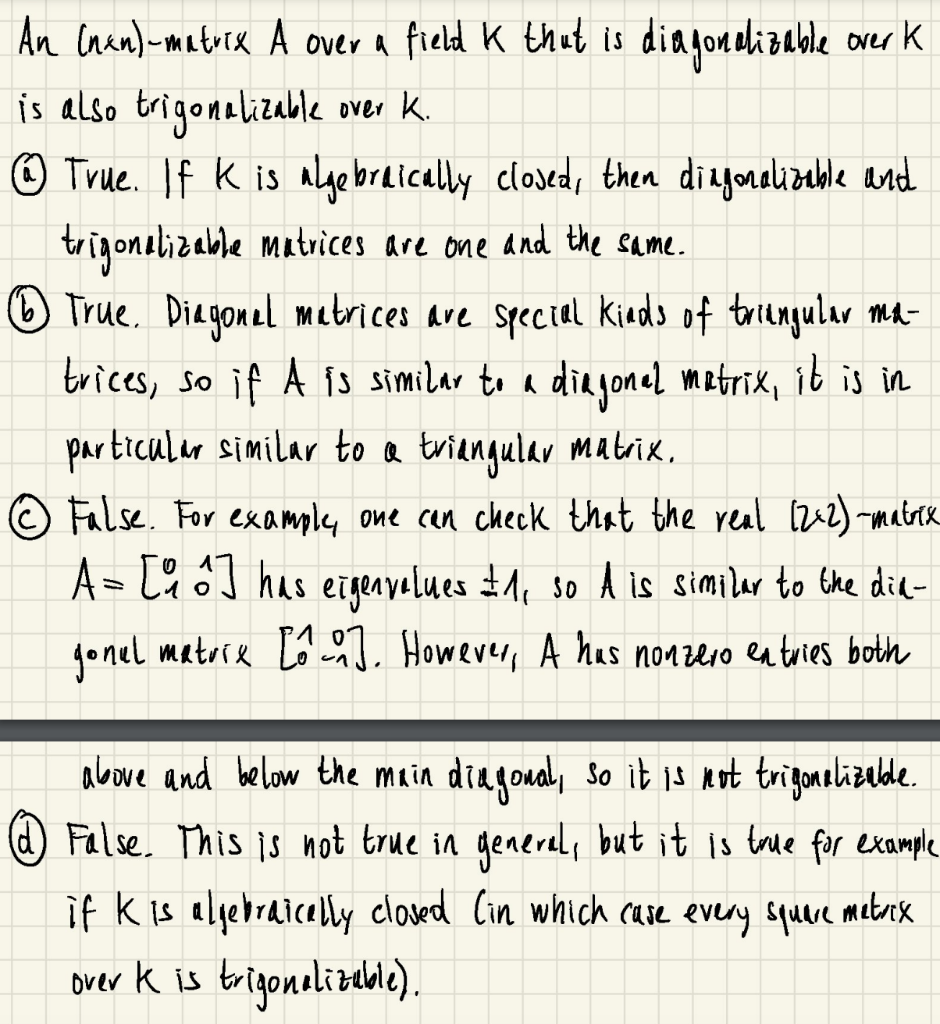 An (n×n)-matrix A over a field K that is diagonalizable over K
is also trigonalizable over K.
ⓐ True. If K is algebraically closed, then diagonalizable and
trigonalizable matrices are one and the same.
ⓑ True. Diagonal matrices are special kinds of triangular ma-
trices, so if A is similar to a diagonal matrix, it is in
particular similar to a triangular matrix.
ⓒ False. For example, one can check that the real (2×2)-matrix
A = [0 1 1 0] has eigenvalues ±1, so A is similar to the dia-
gonal matrix [1 0 0 -1]. However, A has nonzero entries both
above and below the main diagonal, so it is not trigonalizable.
ⓓ False. This is not true in general, but it is true for example
if K is algebraically closed (in which case every square matrix
over K is trigonalizable).